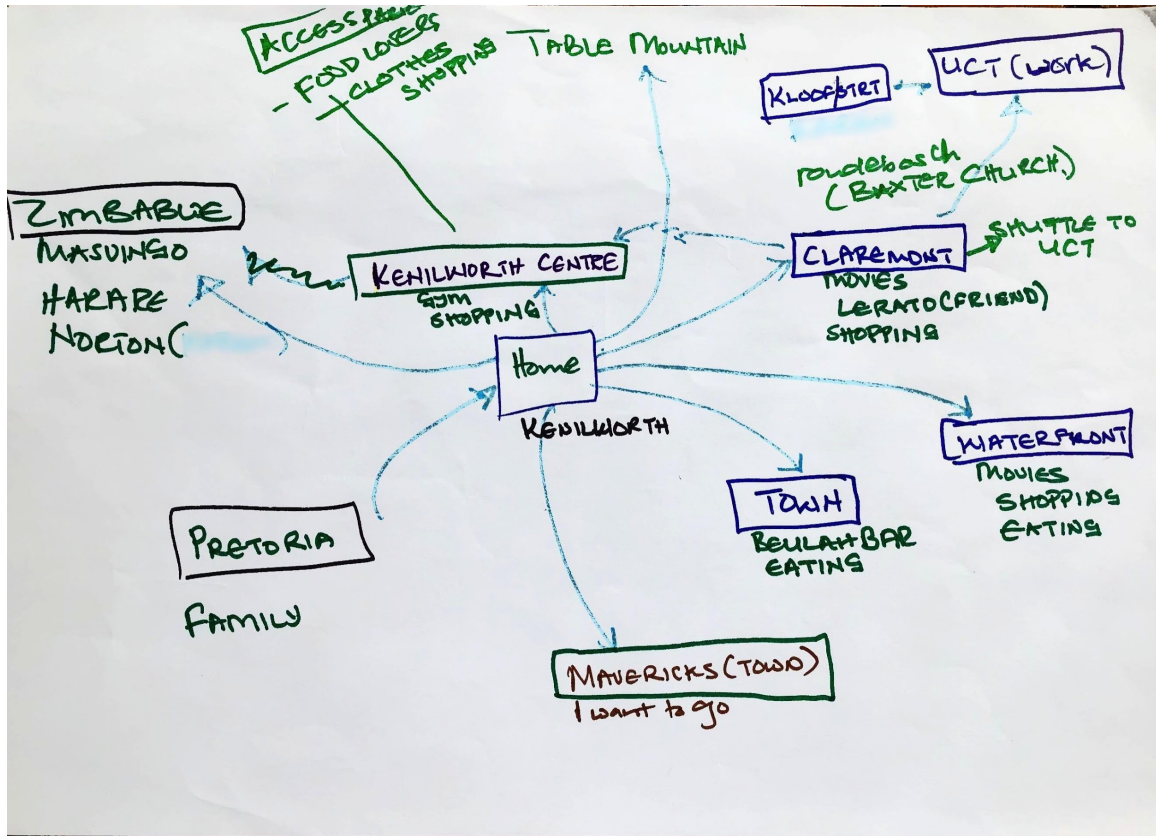 ACCESS PARK
- FOOD LOVERS
- CLOTHES
SHOPPING
TABLE MOUNTAIN
KLOOFSTRT
UCT (WORK)
rondebosch
(BAXTER CHURCH.)
ZIMBABWE
MASVINGO
HARARE
NORTON(
KENILWORTH CENTRE
GYM
SHOPPING
CLAREMONT
MOVIES
LERATO(FRIEND)
SHOPPING
SHUTTLE TO
UCT
Home
KENILWORTH
WATERFRONT
MOVIES
SHOPPING
EATING
TOWN
BEULAH BAR
EATING
PRETORIA
FAMILY
MAVERICKS (TOWN)
I want to go